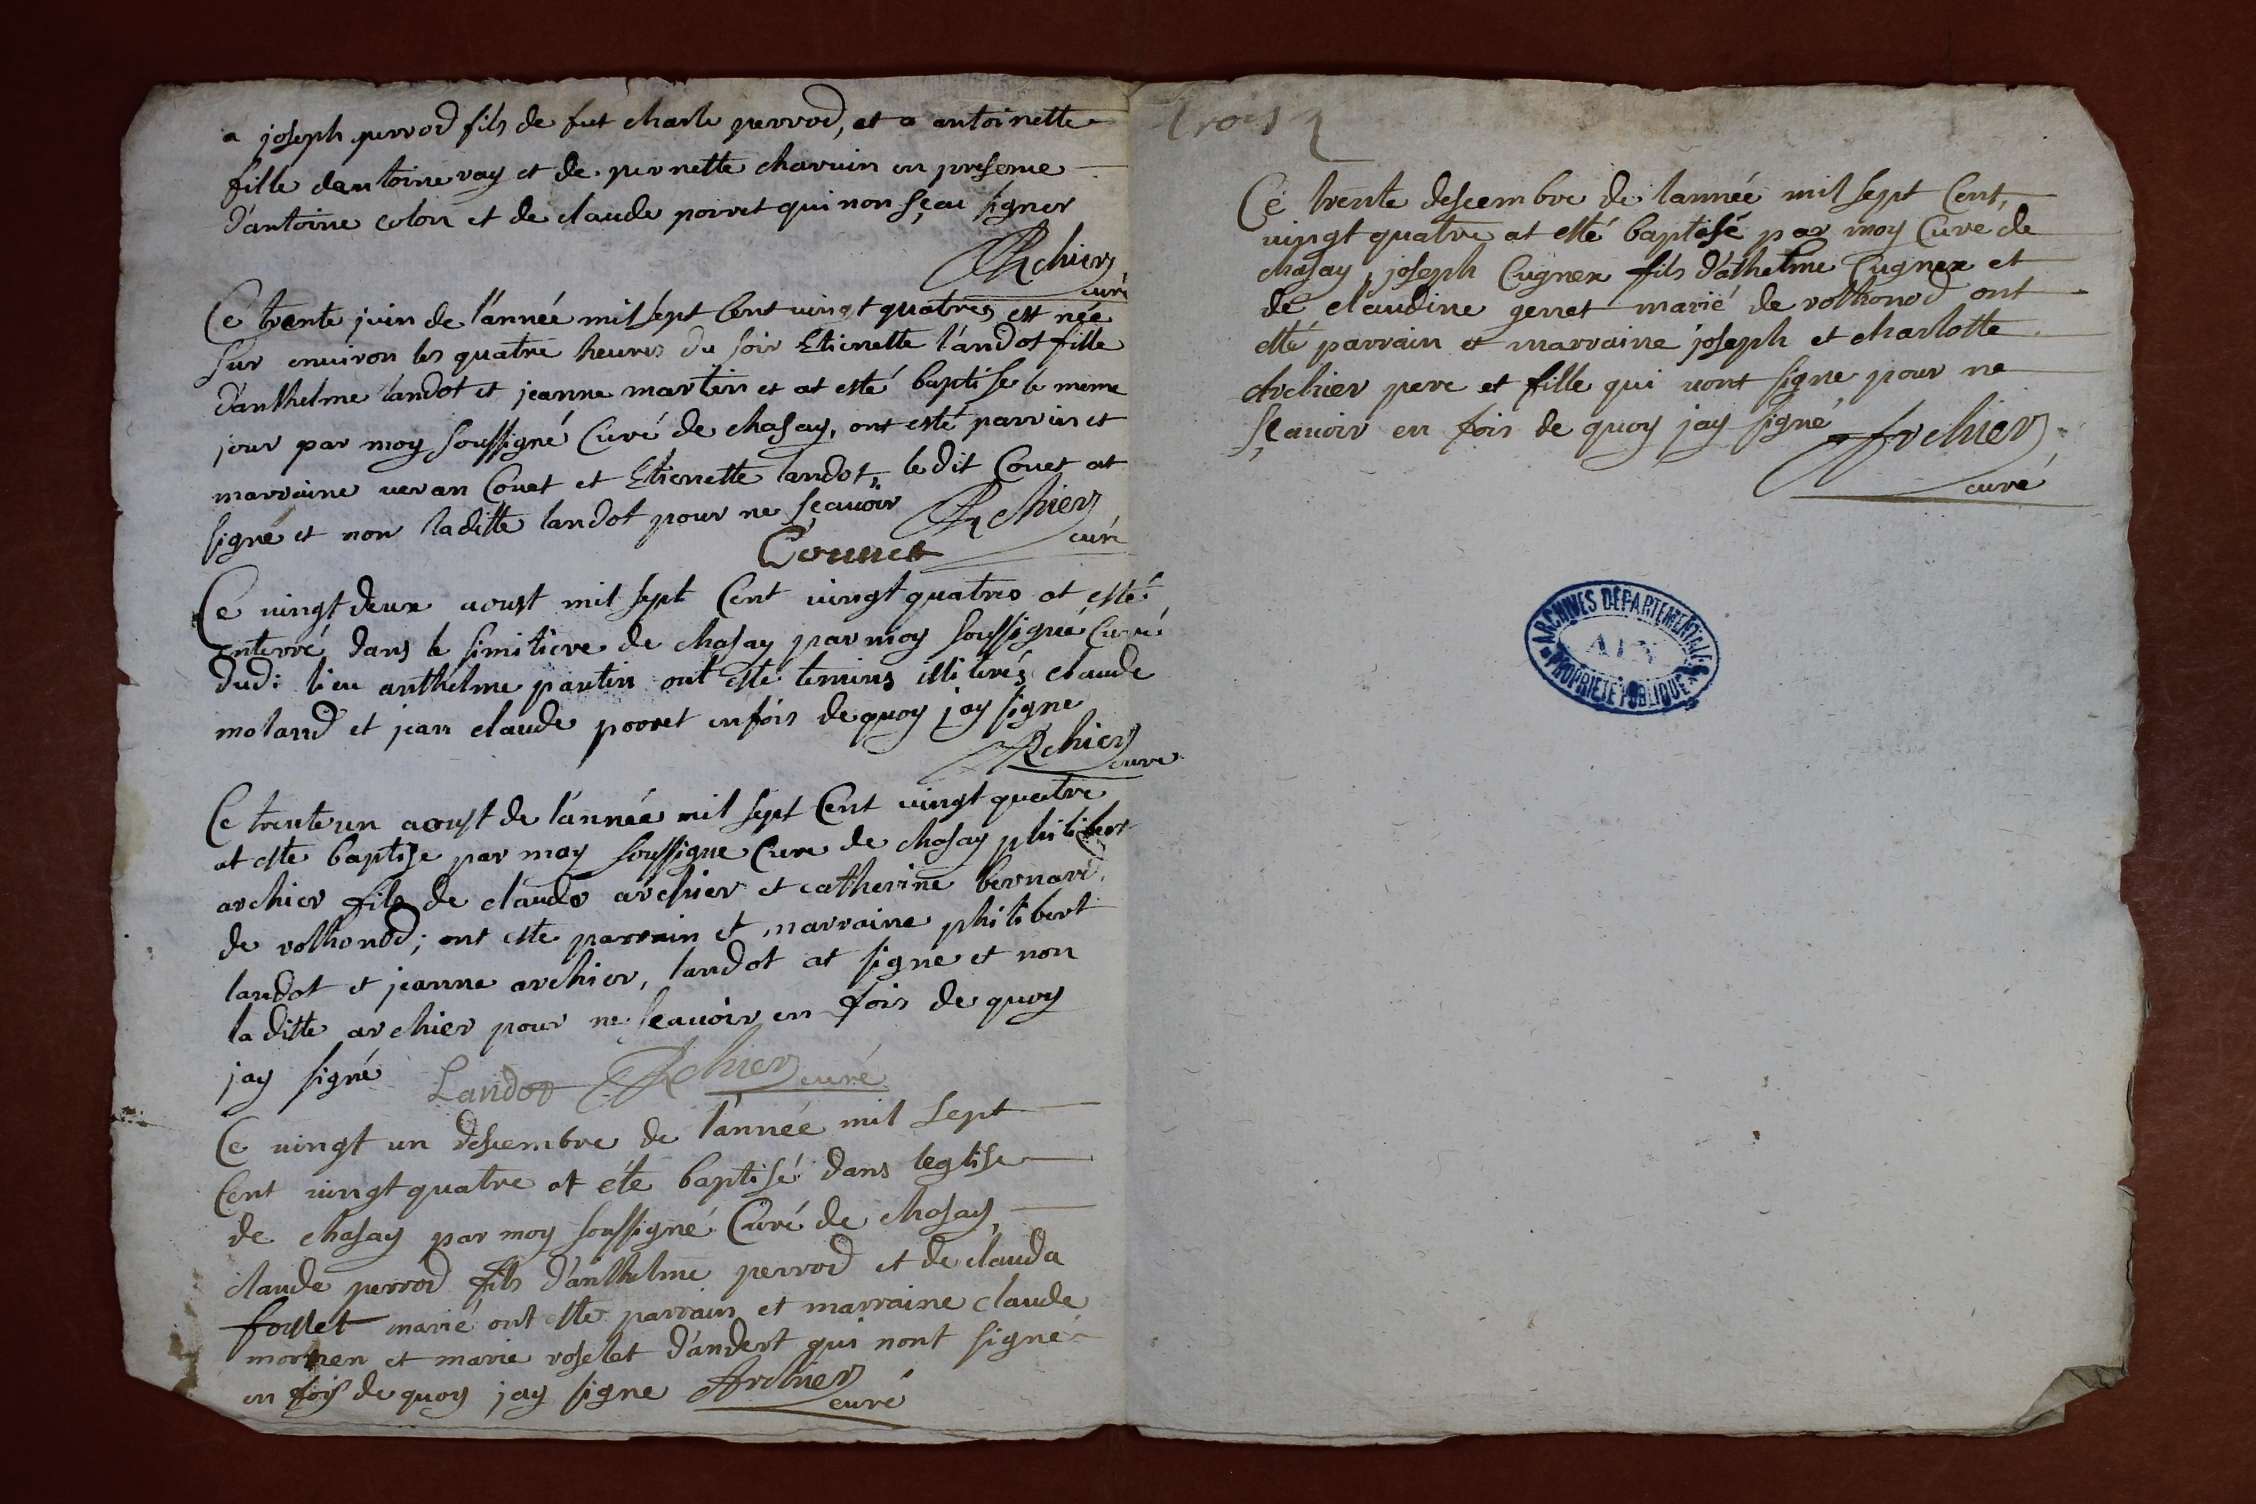 a joseph perrod fils de fut charle perrod, et a antoinette
fille dantoine ray et de pernette charuin en presence
d'antoine colon et de claude porret qui non sçeu signer
Archier
curé
Ce trente juin de l'année mil sept Cent vingt quatres est née
sur environ les quatre heures du soir Etienette landot fille
d'anthelme landot et jeanne martin et at esté baptisé le meme
jour par moy soussigné Curé de chasay, ont esté parrin et
marraine veran Couet et Etienette landot, le dit Couet at
signé et non laditte landot pour ne sçauoir Archier
curé
Ce vingt deux aoust mil sept Cent vingt quatres at esté
enterré dans le simitiere de chasay par moy soussigné Curé
dud: lieu anthelme pantin ont esté temins illiterés claude
moland et jean claude porret en fois de quoy jay signe
Archier
cure
Ce trente un aoust de l'année mil sept Cent vingt quatre
at esté baptise par moy soussigne Cure de chasay philiber
archier fils de claude archier et catherine bernard
de volhonod; ont esté parrain et marraine philibert
landot et jeanne archier, landot at signé et non
la ditte archier pour ne sçauoir en fois de quoy
jay signé Landot Archier curé
Ce vingt un descembre de l'année mil sept
Cent vingt quatre at été baptisé dans leglise
de chasay par moy soussigné Curé de chasay,
claude perrod fils d'anthelme perrod et de clauda
marié ont esté parrain et marraine claude
et marie roselet d'andert qui nont signé
en foy de quoy jay signe Archier
curé
trois
Ce trente descembre de lannée mil sept Cent,
vingt quatre at esté baptisé par moy Cure de
chasay, joseph Cugner fils d'athelme Cugner et
de claudine genet marié de volhonod ont
esté parrain et marraine joseph et charlotte
Archier pere et fille qui nont signe pour ne
sçauoir en fois de quoy jay signé
Archier
curé
ARCHIVES DÉPARTEMENTALES
AIN
PROPRIÉTÉ PUBLIQUE